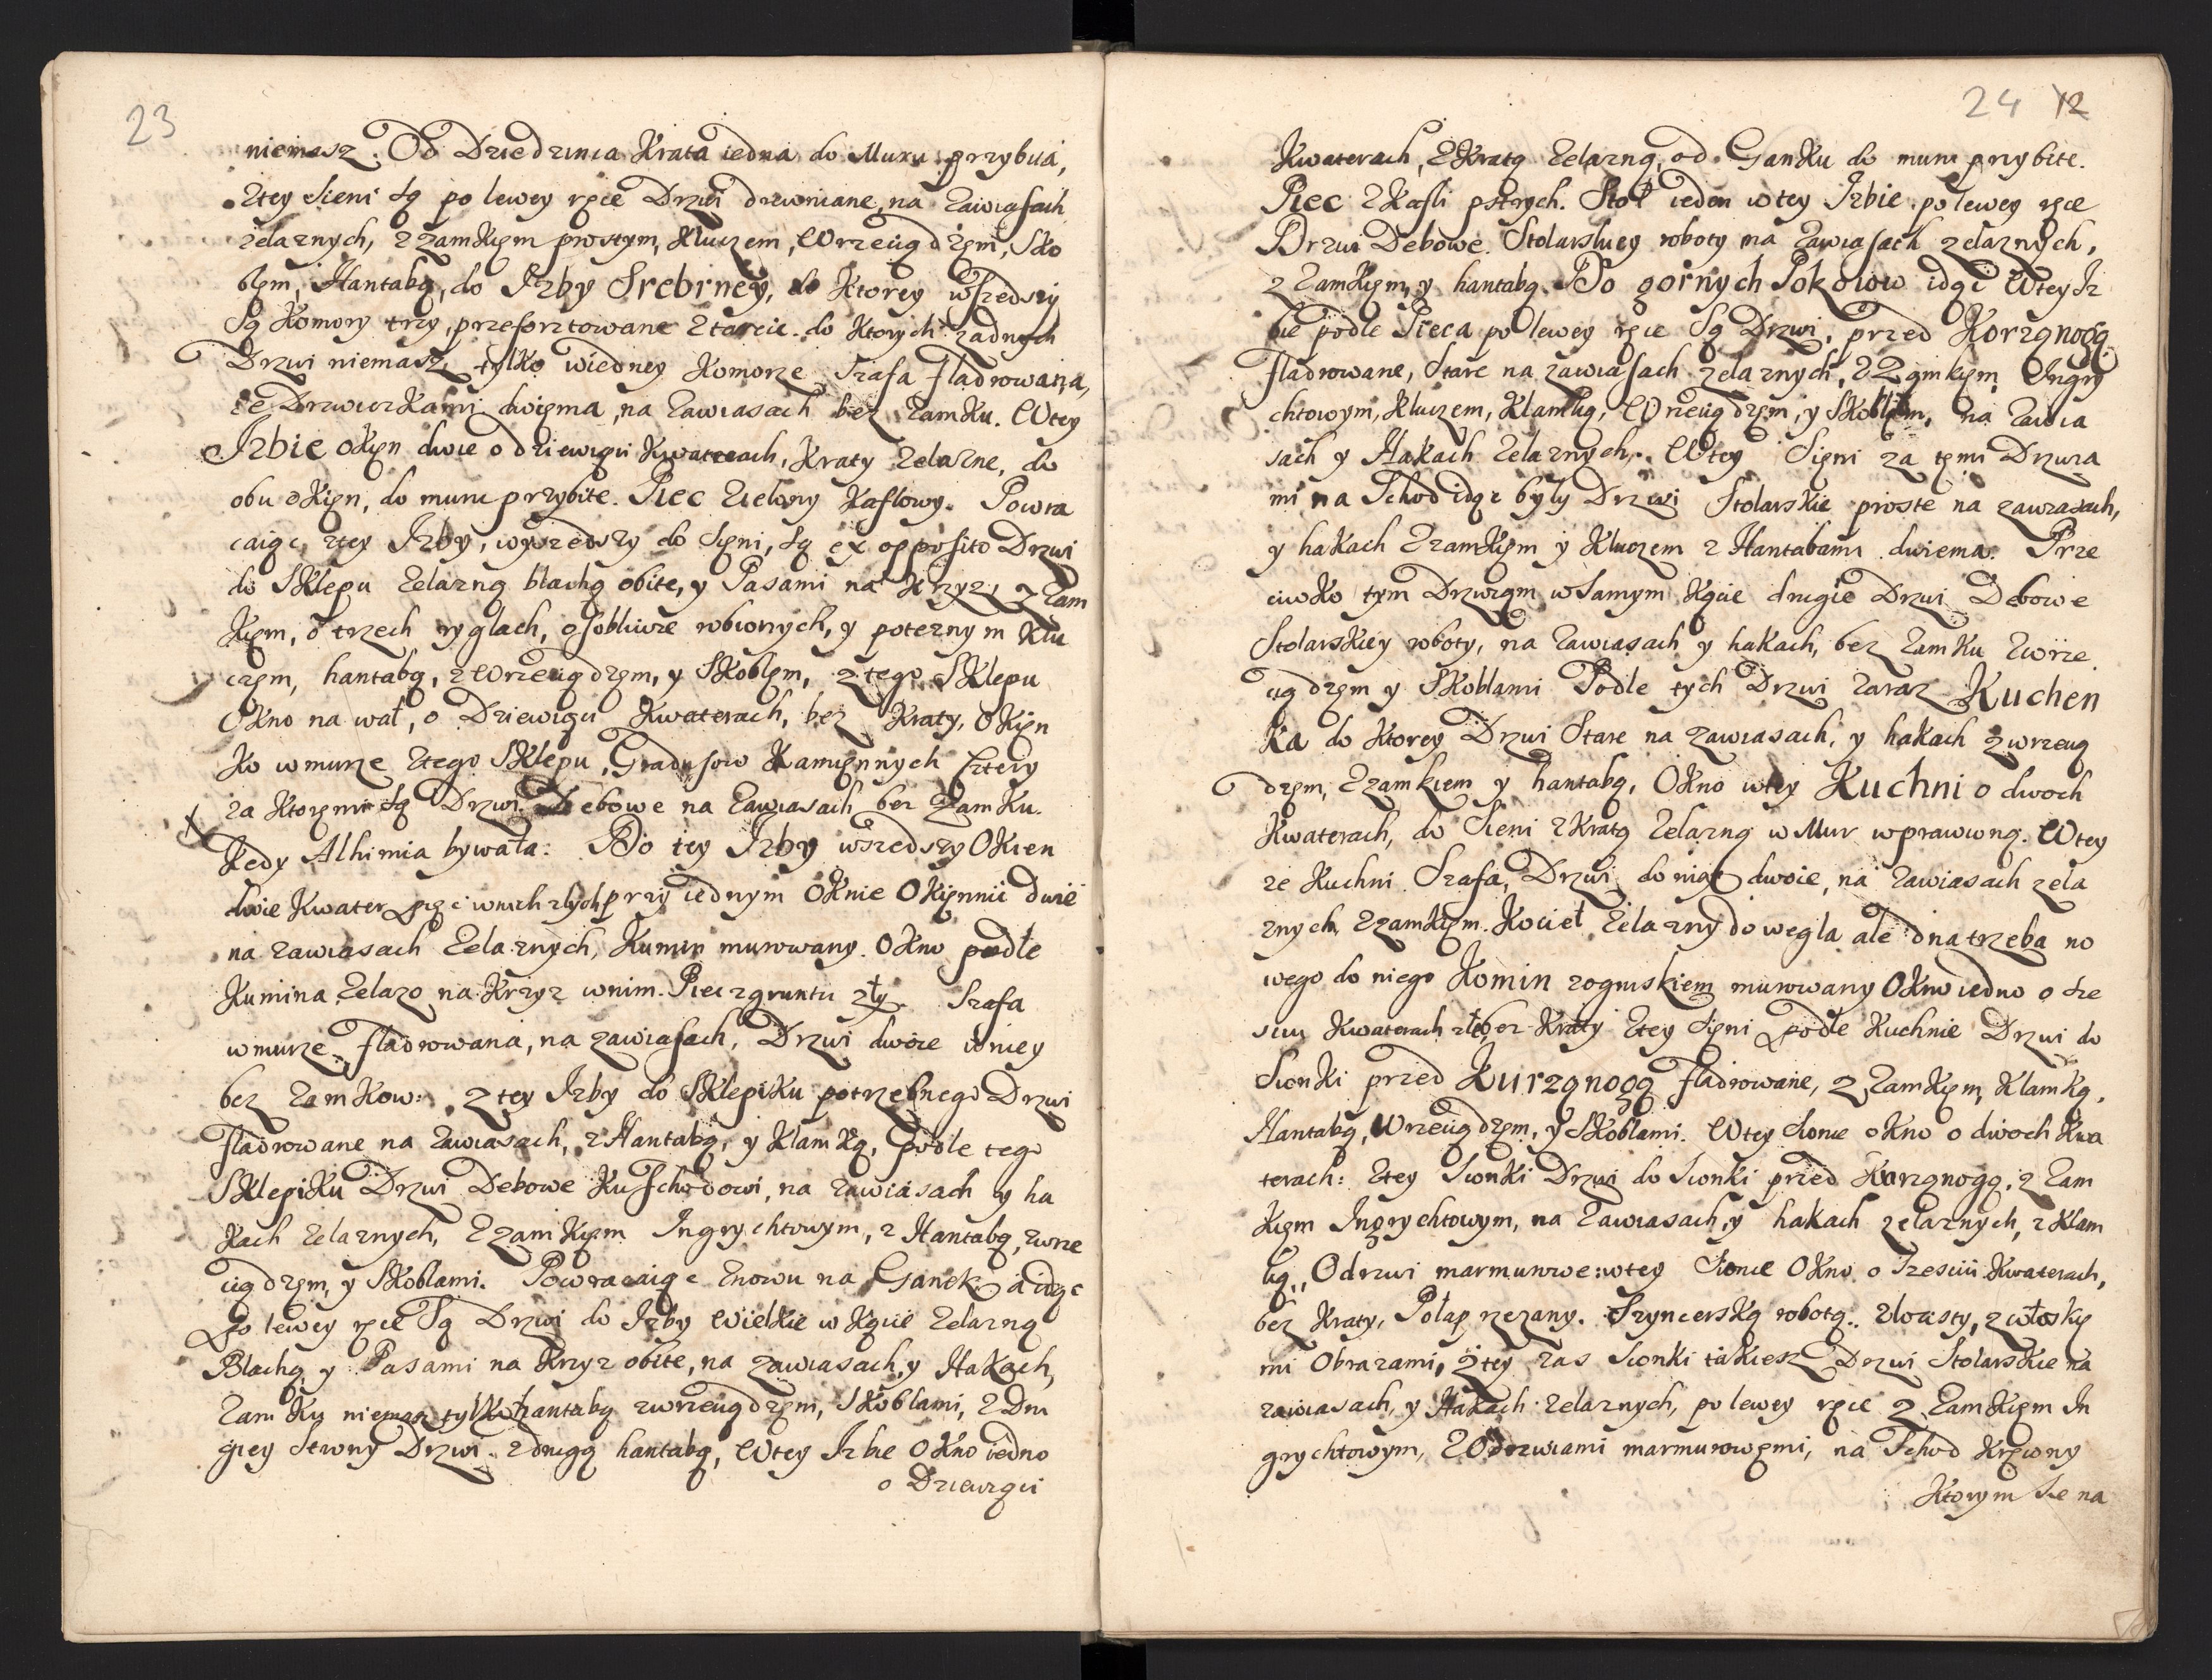 23
niemasz. Od Dziedzinca Krata iedna do Muru przybita,
Ztey Sieni są po lewey ręce Drzwi drewniane, na Zawiasach
zelaznych, z zamkięm prostym, Kluczem, Wrzeciądzęm, Sko
blęm, Hantabą, do Izby Srebrney, do Ktorey wszedszy
Są Komory trzy, przeforztowane z tarcic. do Ktorych zadnych
Drzwi niemasz, tylko wiedney Komorze Szafa fladrowana,
ze Drzwiczkami dwięma, na Zawiasach bez Zamku. Wtey
Izbie okięn dwie o dziewięci Kwaterach, Kraty Zelazne, do
obu okięn, do muru przybite. Piec Zielony Kaflowy. Powra
caiąc, ztey Izby, wyszedszy do Sięni, są ex opposito Drzwi
do Sklepu Zelazną blachą obite, y Pasami na Krzyz, z Zam
kięm, o trzech ryglach, osobliwie robionych, y poteznym Klu
częm, hantabą, z Wrzeciądzęm, y Skoblęm, z tego Sklepu
Okno na wał, o Dziewięci Kwaterach, bez Kraty, Okięn
ko wmurze Ztego Sklepu, Gradusow Kamięnnych Cztery
za Ktorymi są Drzwi Debowe na Zawiasach bez Zamku.
Kedy Alhimia bywała: Do tey Izby wszedszy Okien
dwie Kwater pięc wnich złych przy iednym Oknie Okięnnic dwie
na zawiasach Zelaznych, Kumin murowany. Okno podle
Kumina, Zelazo na Krzyz wnim. Piec zgruntu zły. Szafa
wmurze fladrowana, na zawiasach, Drzwi dwoie wniey
bez Zamkow: z tey Izby do Sklepiku potrzebnego Drzwi
Fladrowane na Zawiasach, z Hantabą, y Klamką, podle tego
Sklepiku Drzwi Debowe Ku Schodowi, na Zawiasach y ha
kach zelaznych, z zamkięm Ingrychtowym, z Hantabą, zwrze
ciądzęm, y Skoblami. Powracaiąc Znowu na Ganek a idąc
Po lewey ręce Są Drzwi do Izby Wielkie w Kącie Zelazną
Blachą, y Pasami na Krzyz obite, na zawiasach, y Hakach,
Zamku niemasz tylko hantabą zwrzeciądzęm, Skoblami, z Dru
giey Strony Drzwi. z drugą hantabą, Wtey Izbie Okno iedno
o Dziewięci
24 12
Kwaterach, z Kratą Zelazną, od Ganku do muru przybite.
Piec z Kafli pstrych. Stoł ieden wtey Izbie. po lewey ręce
Drzwi Debowe. Stolarskiey roboty na Zawiasach zelaznych,
z Zamkięm, y hantabą. Do gornych Pokoiow idąc Wtey Iz
bie podle Pieca po lewey ręce Są Drzwi, przed Korząnogą
Fladrowane, Stare na zawiasach zelaznych, z Zamkięm Ingry
chtowym, Kluczem, Klamką, Wrzeciądzęm, y Skoblęm, na Zawia
sach y Hakach Zelaznych. Wtey Sięni za tęmi Drzwia
mi na Schod idąc były Drzwi Stolarskie proste na zawiasach,
y hakach z zamkięm y Kluczem z Hantabami dwiema. Prze
ciwko tym Drzwiom wsamym Kącie drugie Drzwi Debowe
Stolarskiey roboty, na Zawiasach y hakach, bez Zamku Zwrze
ciądzęm y Skoblami Podle tych Drzwi Zaraz Kuchen
ka do Ktorey Drzwi Stare na zawiasach, y hakach zwrzecią
dzęm, z zamkiem y hantabą, Okno wtey Kuchni o dwoch
Kwaterach, do Sieni z Kratą Zelazną w Mur wprawioną. Wtey
ze Kuchni Szafa, Drzwi do niey dwoie, na Zawiasach zela
znych, z zamkięm. Kocieł Zelazny do węgla ale dna trzeba no
wego do niego Komin zogniskiem murowany Okno iedno o sze
sciu Kwaterach złe, bez Kraty Ztey Sięni podle Kuchnie Drzwi do
Sionki przed Kurząnogą fladrowane, z Zamkięm, Klamką,
Hantabą, Wrzeciądzęm, y Skoblami. Wtey Sionce okno o dwoch Kwa
terach: Ztey Sionki Drzwi do Sionki przed Korząnogą, z Zam
kięm Ingrychtowym, na Zawiasach, y hakach zelaznych, z Klam
ką, Odrzwi marmurowe: wtey Sionce Okno o Szesciu Kwaterach,
bez Kraty, Połap rzezany. Sznycerską robotą. złocisty, z włoskię
mi Obrazami, z tey zas Sionki takiesz Drzwi Stolarskie na
zawiasach, y Hakach zelaznych, po lewey ręce z Zamkięm In
grychtowym, z Odrzwiami marmurowęmi, na Schod Kręcony
Ktorym Sie na